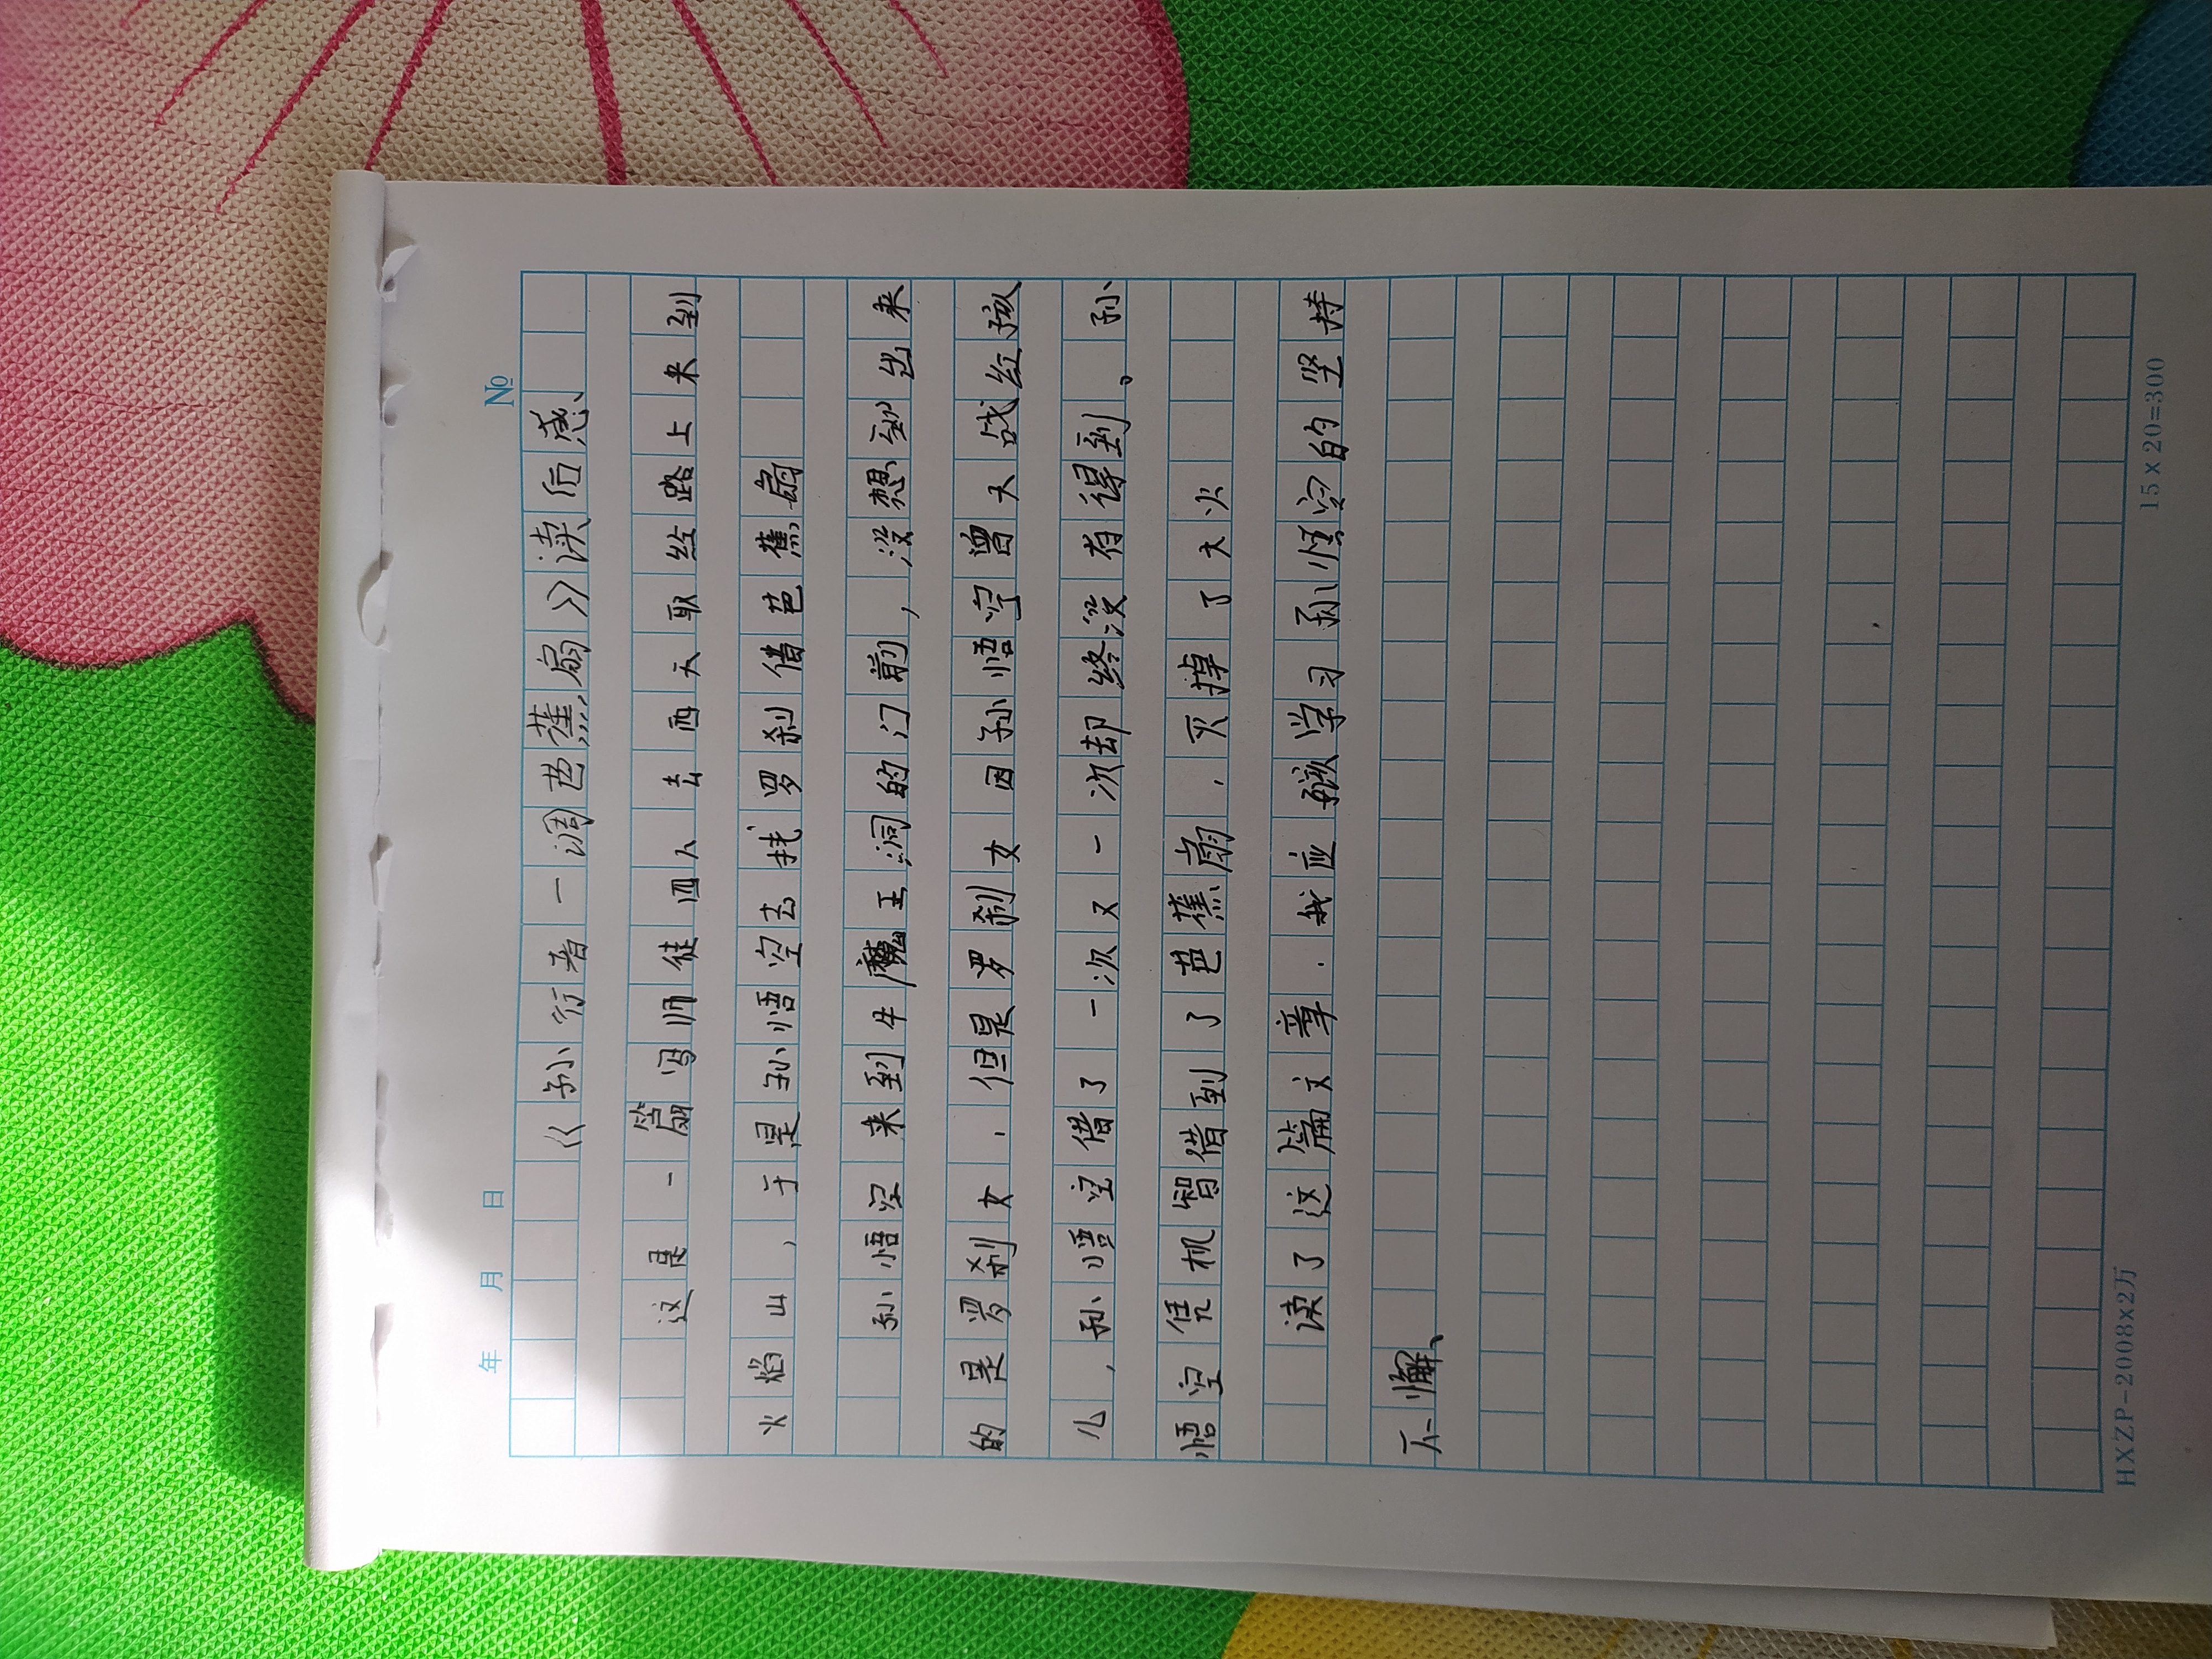 年 月 日 №
《孙行者一调芭蕉扇》读后感、
这是一篇写师徒四人去西天取经路上来到
火焰山，于是孙悟空去找罗刹借芭蕉扇
孙悟空来到牛魔王洞的门前，没想到出来
的是罗刹女．但是罗刹女因孙悟空曾大战红孩
儿，孙悟空借了一次又一次却终没有得到。孙
悟空凭机智借到了芭蕉扇．灭掉了大火
读了这篇文章．我应该学习孙悟空的坚持
不懈、
HXZP-2008x2万 15×20=300